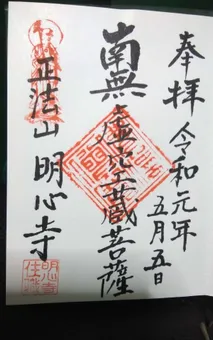 奉拝 令和元年
五月五日
南無虚空蔵菩薩
正法山 明心寺